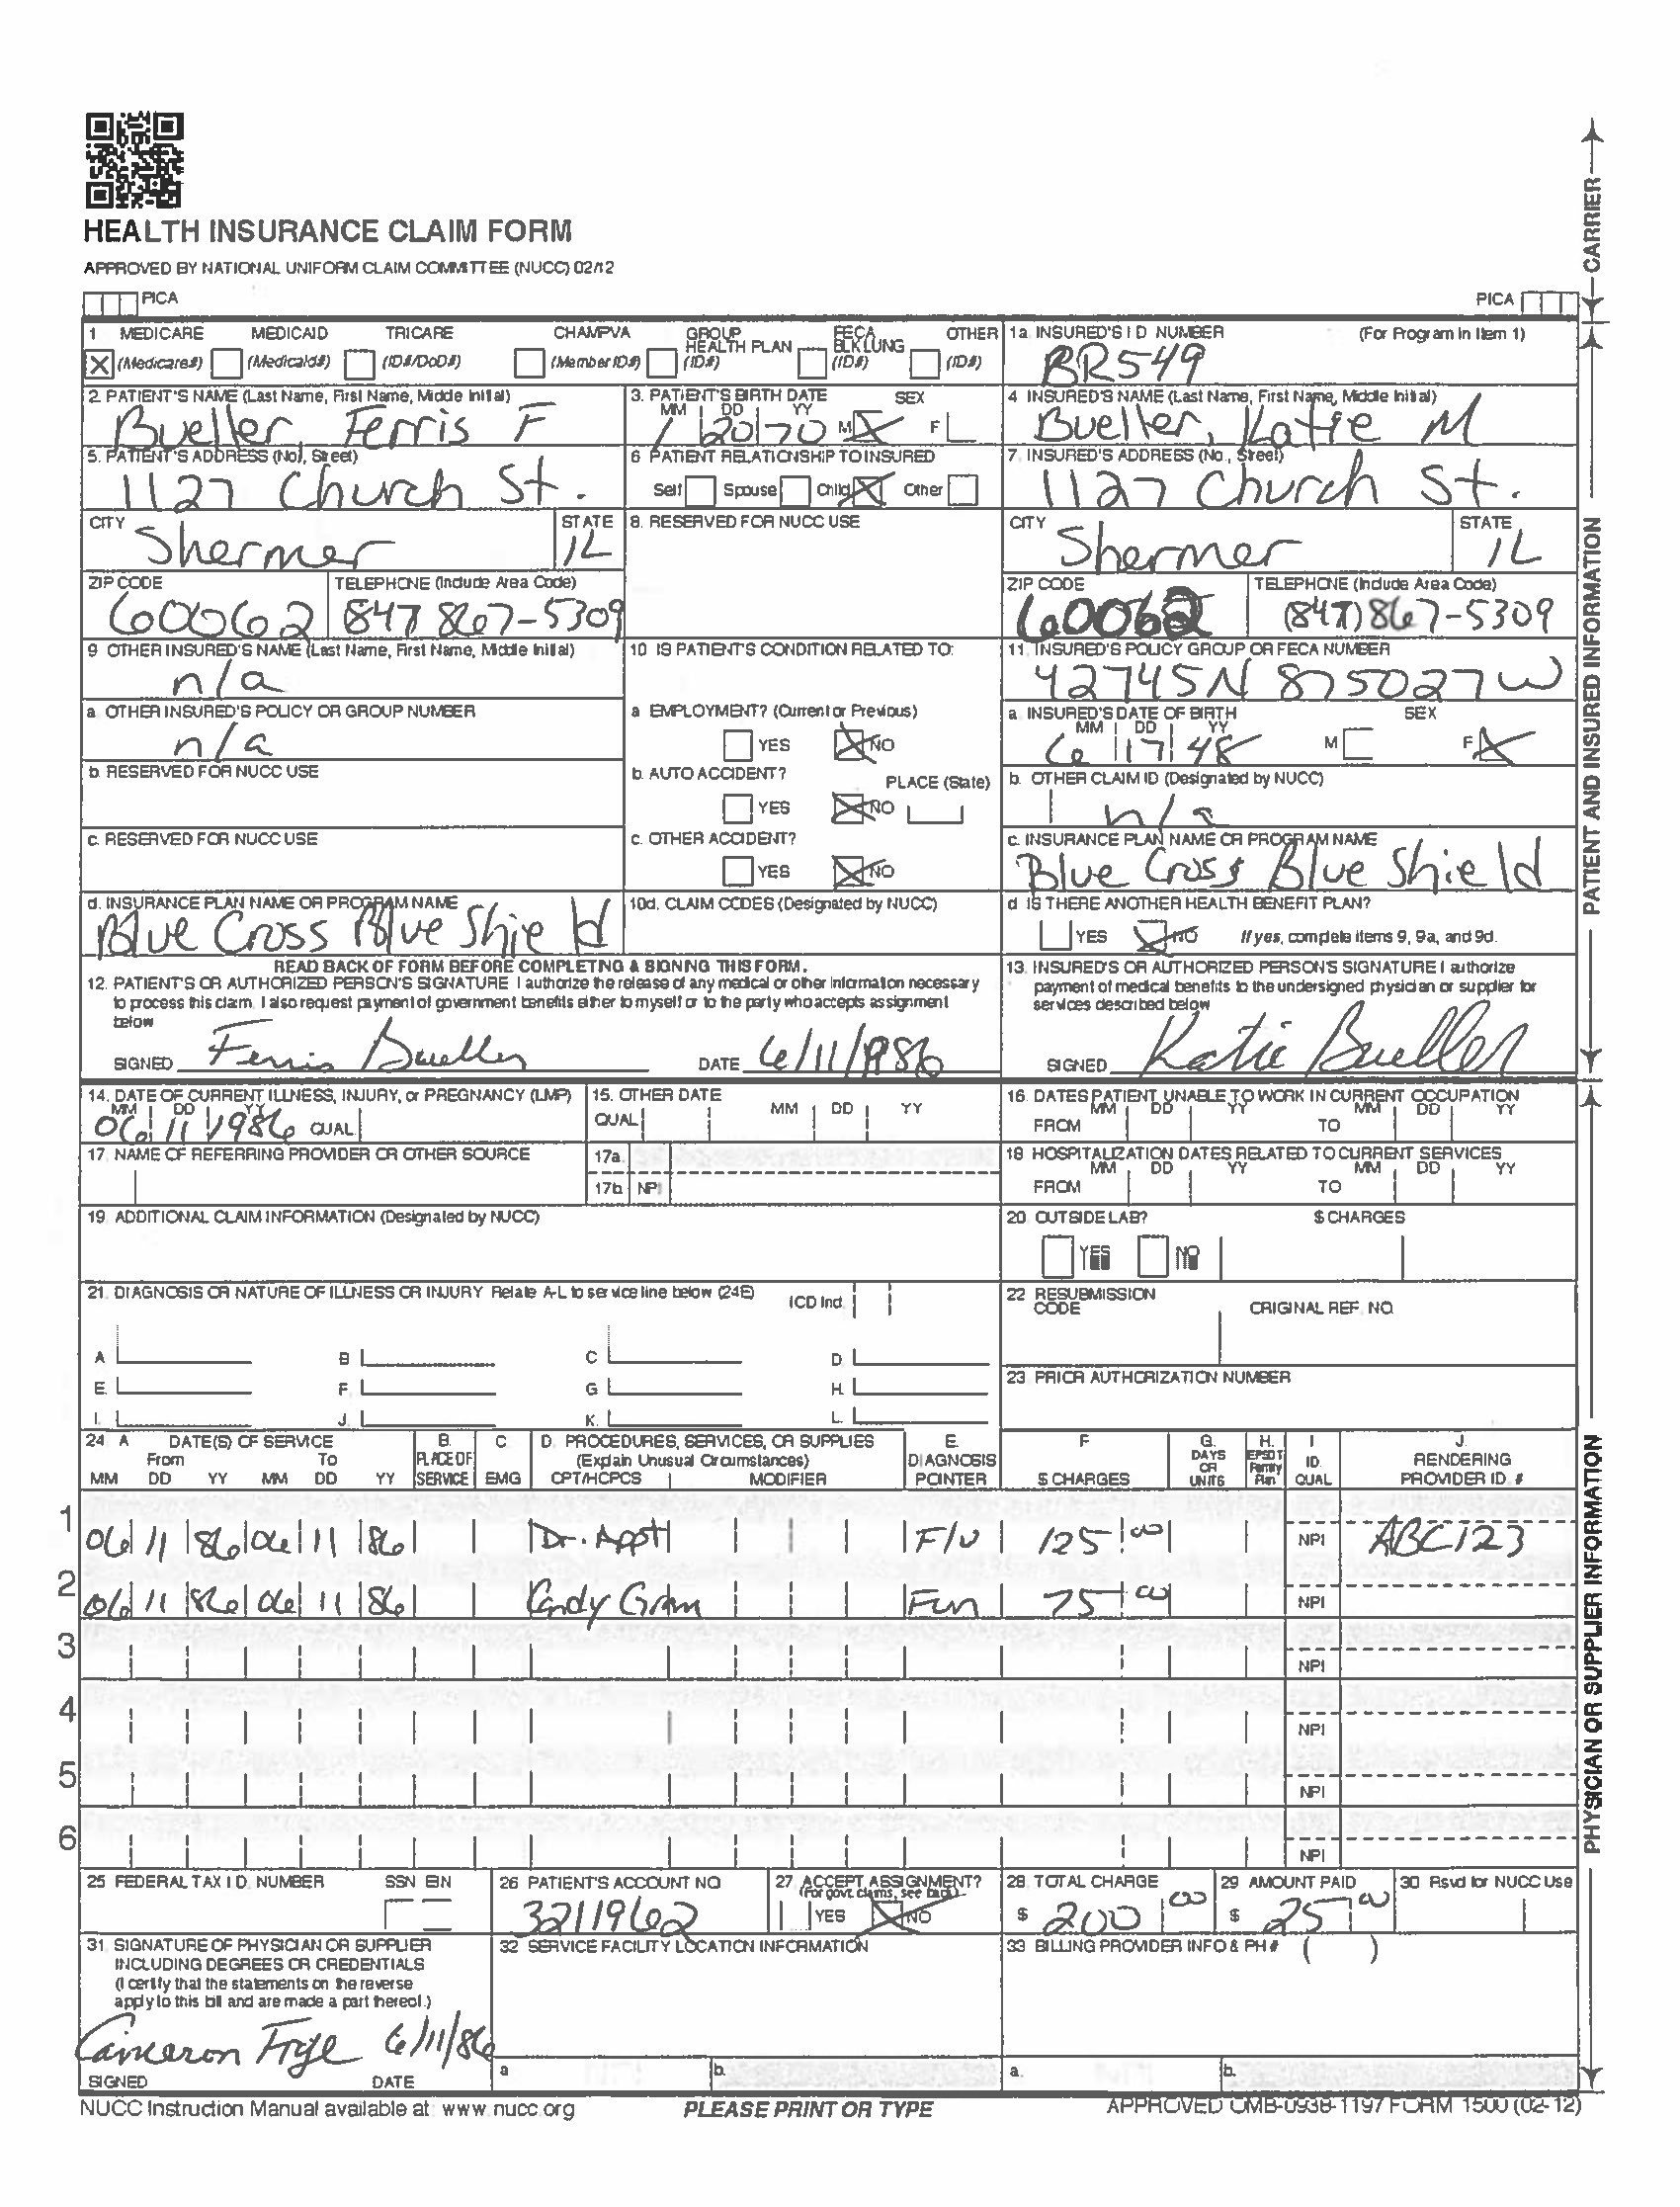 HEALTH INSURANCE CLAIM FORM
APPROVED BY NATIONAL UNIFORM CLAIM COMMITTEE (NUCC) 02/12
PICA PICA
CARRIER
1 MEDICARE MEDICAID TRICARE CHAMPVA GROUP HEALTH PLAN FECA BLK LUNG OTHER
X (Medicare#) (Medicaid#) (ID#/DoD#) (Member ID#) (ID#) (ID#) (ID#)
1a. INSURED'S I D NUMBER (For Program in Item 1)
BR549
2. PATIENT'S NAME (Last Name, First Name, Middle Initial)
Bueller, Ferris F
3. PATIENT'S BIRTH DATE SEX
MM DD YY
1 20 70 M X F
4 INSURED'S NAME (Last Name, First Name, Middle Initial)
Bueller, Katie M
5. PATIENT'S ADDRESS (No., Street)
1127 Church St.
6 PATIENT RELATIONSHIP TO INSURED
Self Spouse Child X Other
7. INSURED'S ADDRESS (No., Street)
1127 Church St.
CITY STATE
Shermer IL
8. RESERVED FOR NUCC USE
CITY STATE
Shermer IL
ZIP CODE TELEPHONE (Include Area Code)
60062 847 867-5309
ZIP CODE TELEPHONE (Include Area Code)
60062 (847) 867-5309
9 OTHER INSURED'S NAME (Last Name, First Name, Middle Initial)
n/a
10 IS PATIENT'S CONDITION RELATED TO:
11. INSURED'S POLICY GROUP OR FECA NUMBER
42745N 875027W
a. OTHER INSURED'S POLICY OR GROUP NUMBER
n/a
a EMPLOYMENT? (Current or Previous)
YES X NO
a. INSURED'S DATE OF BIRTH SEX
MM DD YY
6 17 48 M F X
b. RESERVED FOR NUCC USE
b. AUTO ACCIDENT? PLACE (State)
YES X NO
b. OTHER CLAIM ID (Designated by NUCC)
n/a
c. RESERVED FOR NUCC USE
c. OTHER ACCIDENT?
YES X NO
c. INSURANCE PLAN NAME OR PROGRAM NAME
Blue Cross Blue Shield
d. INSURANCE PLAN NAME OR PROGRAM NAME
Blue Cross Blue Shield
10d. CLAIM CODES (Designated by NUCC)
d IS THERE ANOTHER HEALTH BENEFIT PLAN?
YES X NO If yes, complete items 9, 9a, and 9d.
PATIENT AND INSURED INFORMATION
READ BACK OF FORM BEFORE COMPLETING & SIGNING THIS FORM.
12. PATIENT'S OR AUTHORIZED PERSON'S SIGNATURE I authorize the release of any medical or other information necessary
to process this claim. I also request payment of government benefits either to myself or to the party who accepts assignment
below
SIGNED Ferris Bueller DATE 6/11/1986
13. INSURED'S OR AUTHORIZED PERSON'S SIGNATURE I authorize
payment of medical benefits to the undersigned physician or supplier for
services described below
SIGNED Katie Bueller
14. DATE OF CURRENT ILLNESS, INJURY, or PREGNANCY (LMP)
MM DD YY
06 11 1986 QUAL
15. OTHER DATE
QUAL MM DD YY
16. DATES PATIENT UNABLE TO WORK IN CURRENT OCCUPATION
MM DD YY MM DD YY
FROM TO
17. NAME OF REFERRING PROVIDER OR OTHER SOURCE
17a.
17b NPI
18 HOSPITALIZATION DATES RELATED TO CURRENT SERVICES
MM DD YY MM DD YY
FROM TO
19. ADDITIONAL CLAIM INFORMATION (Designated by NUCC)
20. OUTSIDE LAB? $ CHARGES
YES NO
21. DIAGNOSIS OR NATURE OF ILLNESS OR INJURY Relate A-L to service line below (24E) ICD Ind.
A B C D.
E. F. G H.
I. J. K. L.
22 RESUBMISSION CODE ORIGINAL REF. NO.
23. PRIOR AUTHORIZATION NUMBER
24. A DATE(S) OF SERVICE B. C. D. PROCEDURES, SERVICES, OR SUPPLIES E. F G. H. I J.
From To PLACE OF (Explain Unusual Circumstances) DIAGNOSIS DAYS OR EPSDT Family ID. RENDERING
MM DD YY MM DD YY SERVICE EMG CPT/HCPCS MODIFIER POINTER $ CHARGES UNITS Plan QUAL PROVIDER ID. #
1 06 11 86 06 11 86 Dr. Appt F/U 125 00 NPI ABC123
2 06 11 86 06 11 86 Candy Gram Fun 75 00 NPI
3 NPI
4 NPI
5 NPI
6 NPI
PHYSICIAN OR SUPPLIER INFORMATION
25 FEDERAL TAX I D. NUMBER SSN EIN
26 PATIENT'S ACCOUNT NO
3211962
27. ACCEPT ASSIGNMENT?
(For govt. claims, see back)
YES X NO
28. TOTAL CHARGE
$ 200 00
29 AMOUNT PAID
$ 25 00
30 Rsvd for NUCC Use
31. SIGNATURE OF PHYSICIAN OR SUPPLIER
INCLUDING DEGREES OR CREDENTIALS
(I certify that the statements on the reverse
apply to this bill and are made a part thereof.)
Cameron Frye 6/11/86
SIGNED DATE
32 SERVICE FACILITY LOCATION INFORMATION
a b.
33 BILLING PROVIDER INFO & PH # ( )
a. b.
NUCC Instruction Manual available at: www.nucc.org
PLEASE PRINT OR TYPE
APPROVED OMB-0938-1197 FORM 1500 (02-12)